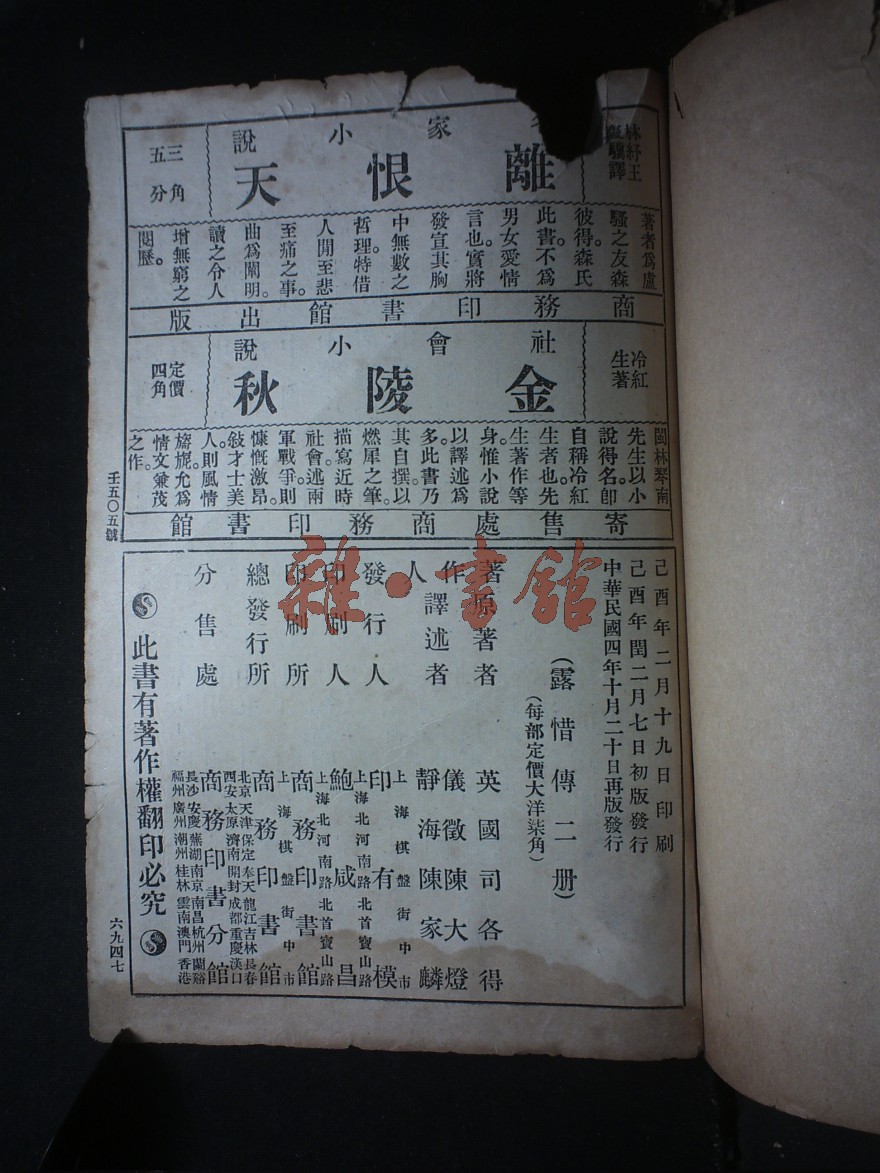 林紓王
慶驥譯
家小說
離恨天
三角
五分
著者爲盧
騷之友森
彼得森氏
此書不爲
男女愛情
言也。實將
發宣其胸
中無數之
哲理特借
人間至悲
至痛之事。
曲爲闡明。
讀之令人
增無窮之
閱歷。
商務印書館出版
社會小說
冷紅
生著
金陵秋
定價
四角
閩林琴南
先生以小
說得名卽
自稱冷紅
生者也。先
生著作等
身。惟小說
以譯述爲
多。此書乃
其自撰。以
燃犀之筆。
描寫近時
社會。述兩
軍戰爭。則
慷慨激昂。
敍才士美
人。則風情
旖旎。允爲
情文兼茂
之作。
寄售處商務印書館
壬五〇五號
己酉年二月十九日印刷
己酉年閏二月七日初版發行
中華民國四年十月二十日再版發行
(露惜傳二册)
(每部定價大洋柒角)
著作人
原著者 英國司各得
譯述者 儀徵陳大燈
靜海陳家麟
發行人 印有模
上海棋盤街中市
印刷人 鮑咸昌
上海北河南路北首寶山路
印刷所 商務印書館
上海北河南路北首寶山路
總發行所 商務印書館
上海棋盤街中市
分售處 商務印書分館
北京天津保定奉天龍江吉林長春
西安太原濟南開封成都重慶漢口
長沙安慶蕪湖南京南昌杭州蘭谿
福州廣州潮州桂林雲南澳門香港
此書有著作權翻印必究
六九四七
雜·書館